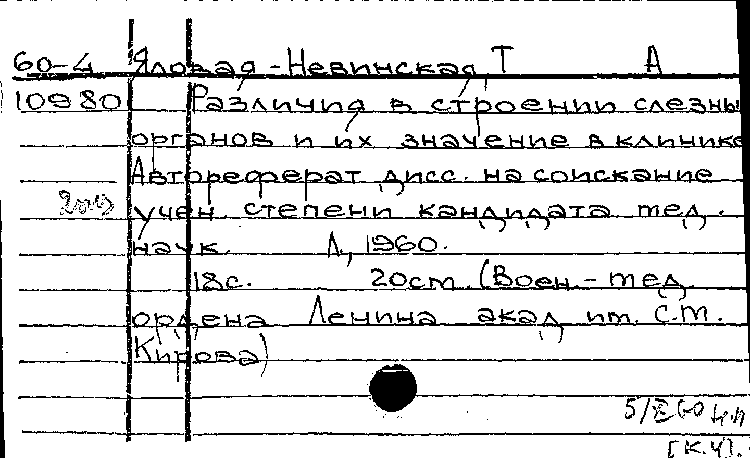 60-4 Яловая-Невинская, Т А
10980 Различия в строении слезны
органов и их значение в клинике
Автореферат дисс. на соискание
учен. степени кандидата мед.
наук. Л, 1960.
18с. 20cm. (Воен-мед.
ордена Ленина акад им. С.М.
Кирова)
5/X 60
[К.Ч].